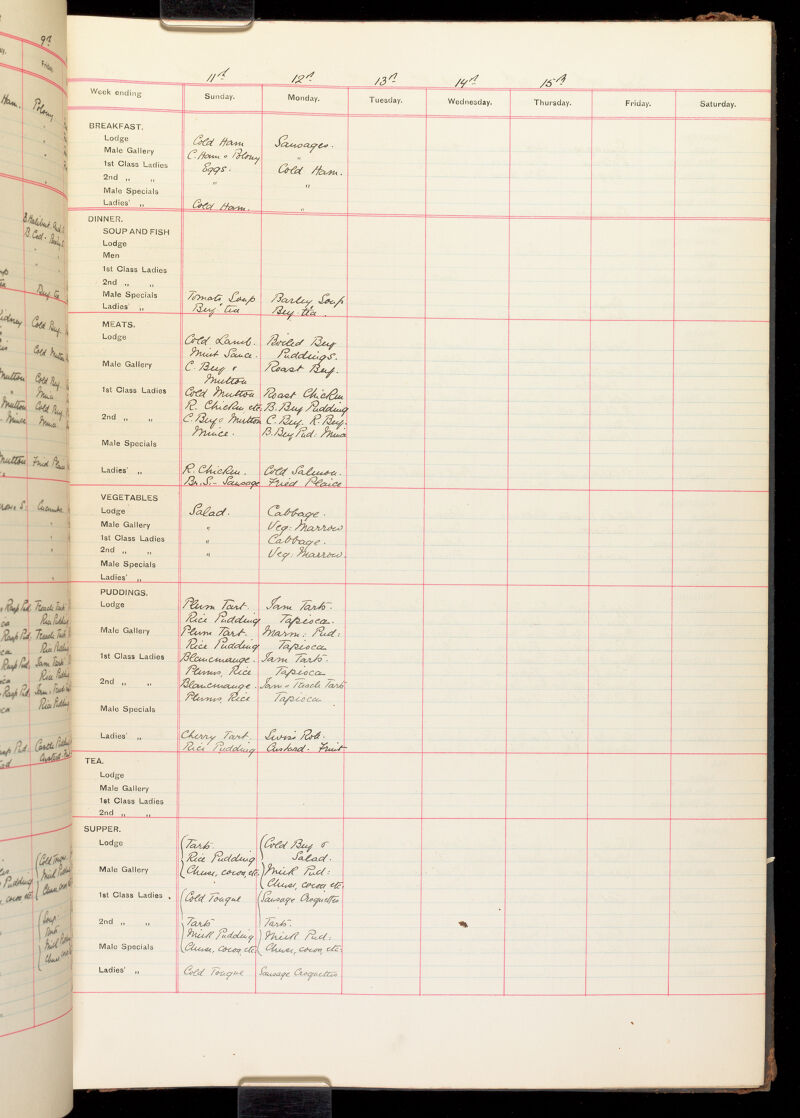 9th
Friday.
11th 12th 13th 14th 15th
Week ending Sunday. Monday. Tuesday. Wednesday. Thursday. Friday. Saturday.
BREAKFAST.
Lodge Cold Ham Sausages.
Male Gallery C. Ham & Polony "
1st Class Ladies Eggs. Cold Ham.
2nd " " " "
Male Specials
Ladies' " Cold Ham. "
DINNER.
SOUP AND FISH
Lodge
Men
1st Class Ladies
2nd " "
Male Specials Tomato Soup Barley Soup
Ladies' " Beef tea Beef tea.
MEATS.
Lodge Cold Lamb. Boiled Beef
Mint Sauce. Puddings.
Male Gallery C. Beef & Roast Beef.
Mutton
1st Class Ladies Cold Mutton Roast Chicken
R. Chicken etc. B. Beef Pudding
2nd " " C. Beef & Mutton C. Beef. R. Beef.
Mince. B. Beef Pud: Mince
Male Specials
Ladies' " R. Chicken. Cold Salmon.
Br. S.- Sausage Fried Plaice
VEGETABLES
Lodge Salad. Cabbage.
Male Gallery " Veg: Marrow
1st Class Ladies " Cabbage.
2nd " " " Veg. Marrow.
Male Specials
Ladies' "
PUDDINGS.
Lodge Plum Tart. Jam Tarts.
Rice Pudding Tapioca.
Male Gallery Plum Tart. Marm: Pud:
Rice Pudding Tapioca
1st Class Ladies Blancmange. Jam Tarts.
Plums, Rice Tapioca
2nd " " Blancmange. Jam & Treacle Tarts
Plums, Rice Tapioca
Male Specials
Ladies' " Cherry Tart. Swiss Roll.
Rice Pudding Custard. Fruit
TEA.
Lodge
Male Gallery
1st Class Ladies
2nd " "
SUPPER.
Lodge Tarts. Cold Beef &
Rice Pudding Salad.
Male Gallery Cheese, cocoa, etc. Milk Pud:
Cheese, cocoa, etc.
1st Class Ladies Cold Tongue Sausage Croquettes
2nd " " Tarts Tarts.
Milk Pudding Milk Pud:
Male Specials Cheese, cocoa, etc. Cheese, cocoa, etc.
Ladies' " Cold Tongue Sausage Croquettes